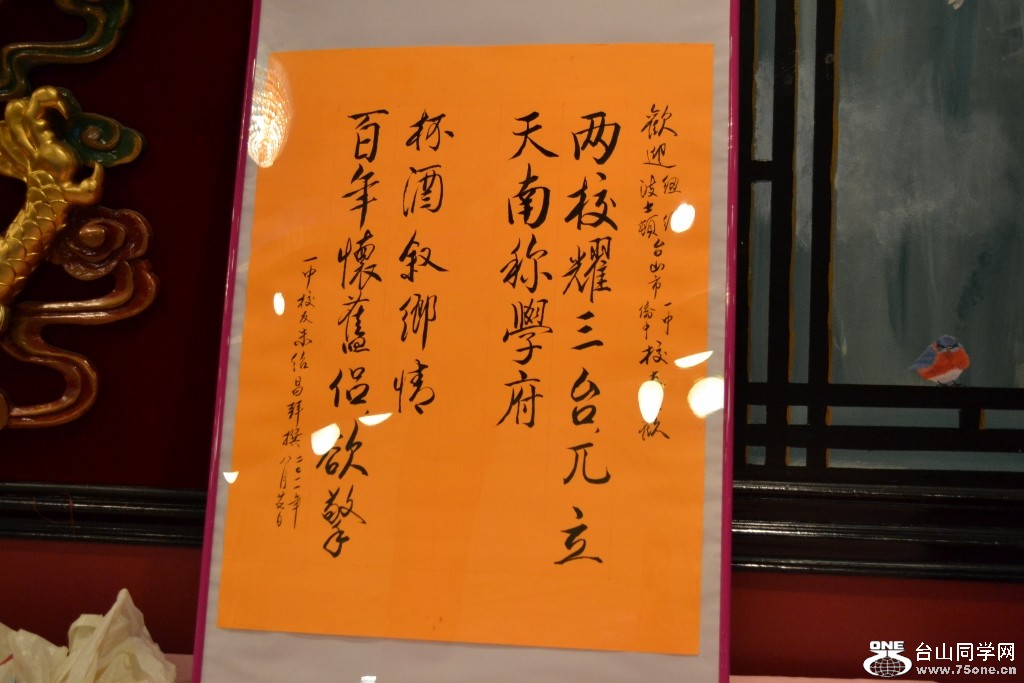 歡迎
波士頓
台山市
一中
僑中
校
两校耀三台,兀立
天南称學府
杯酒叙鄉情
百年懷舊侣,欲擎
一中校友朱伯昌拜撰
二〇一一年
八月廿日
ONE
台山同学网
www.75one.cn